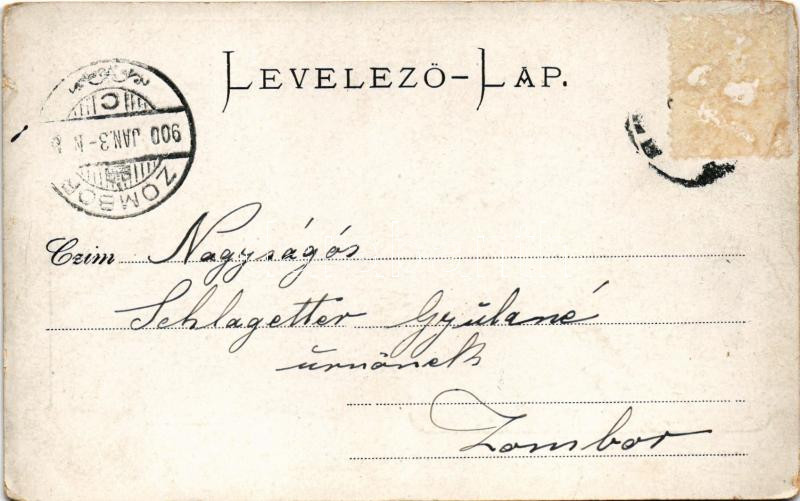 LEVELEZŐ-LAP.
ZOMBOR
900 JAN. 3-N
C
Czim Nagyságós
Schlagetter Gyuláné
úrnőnek
Zombor